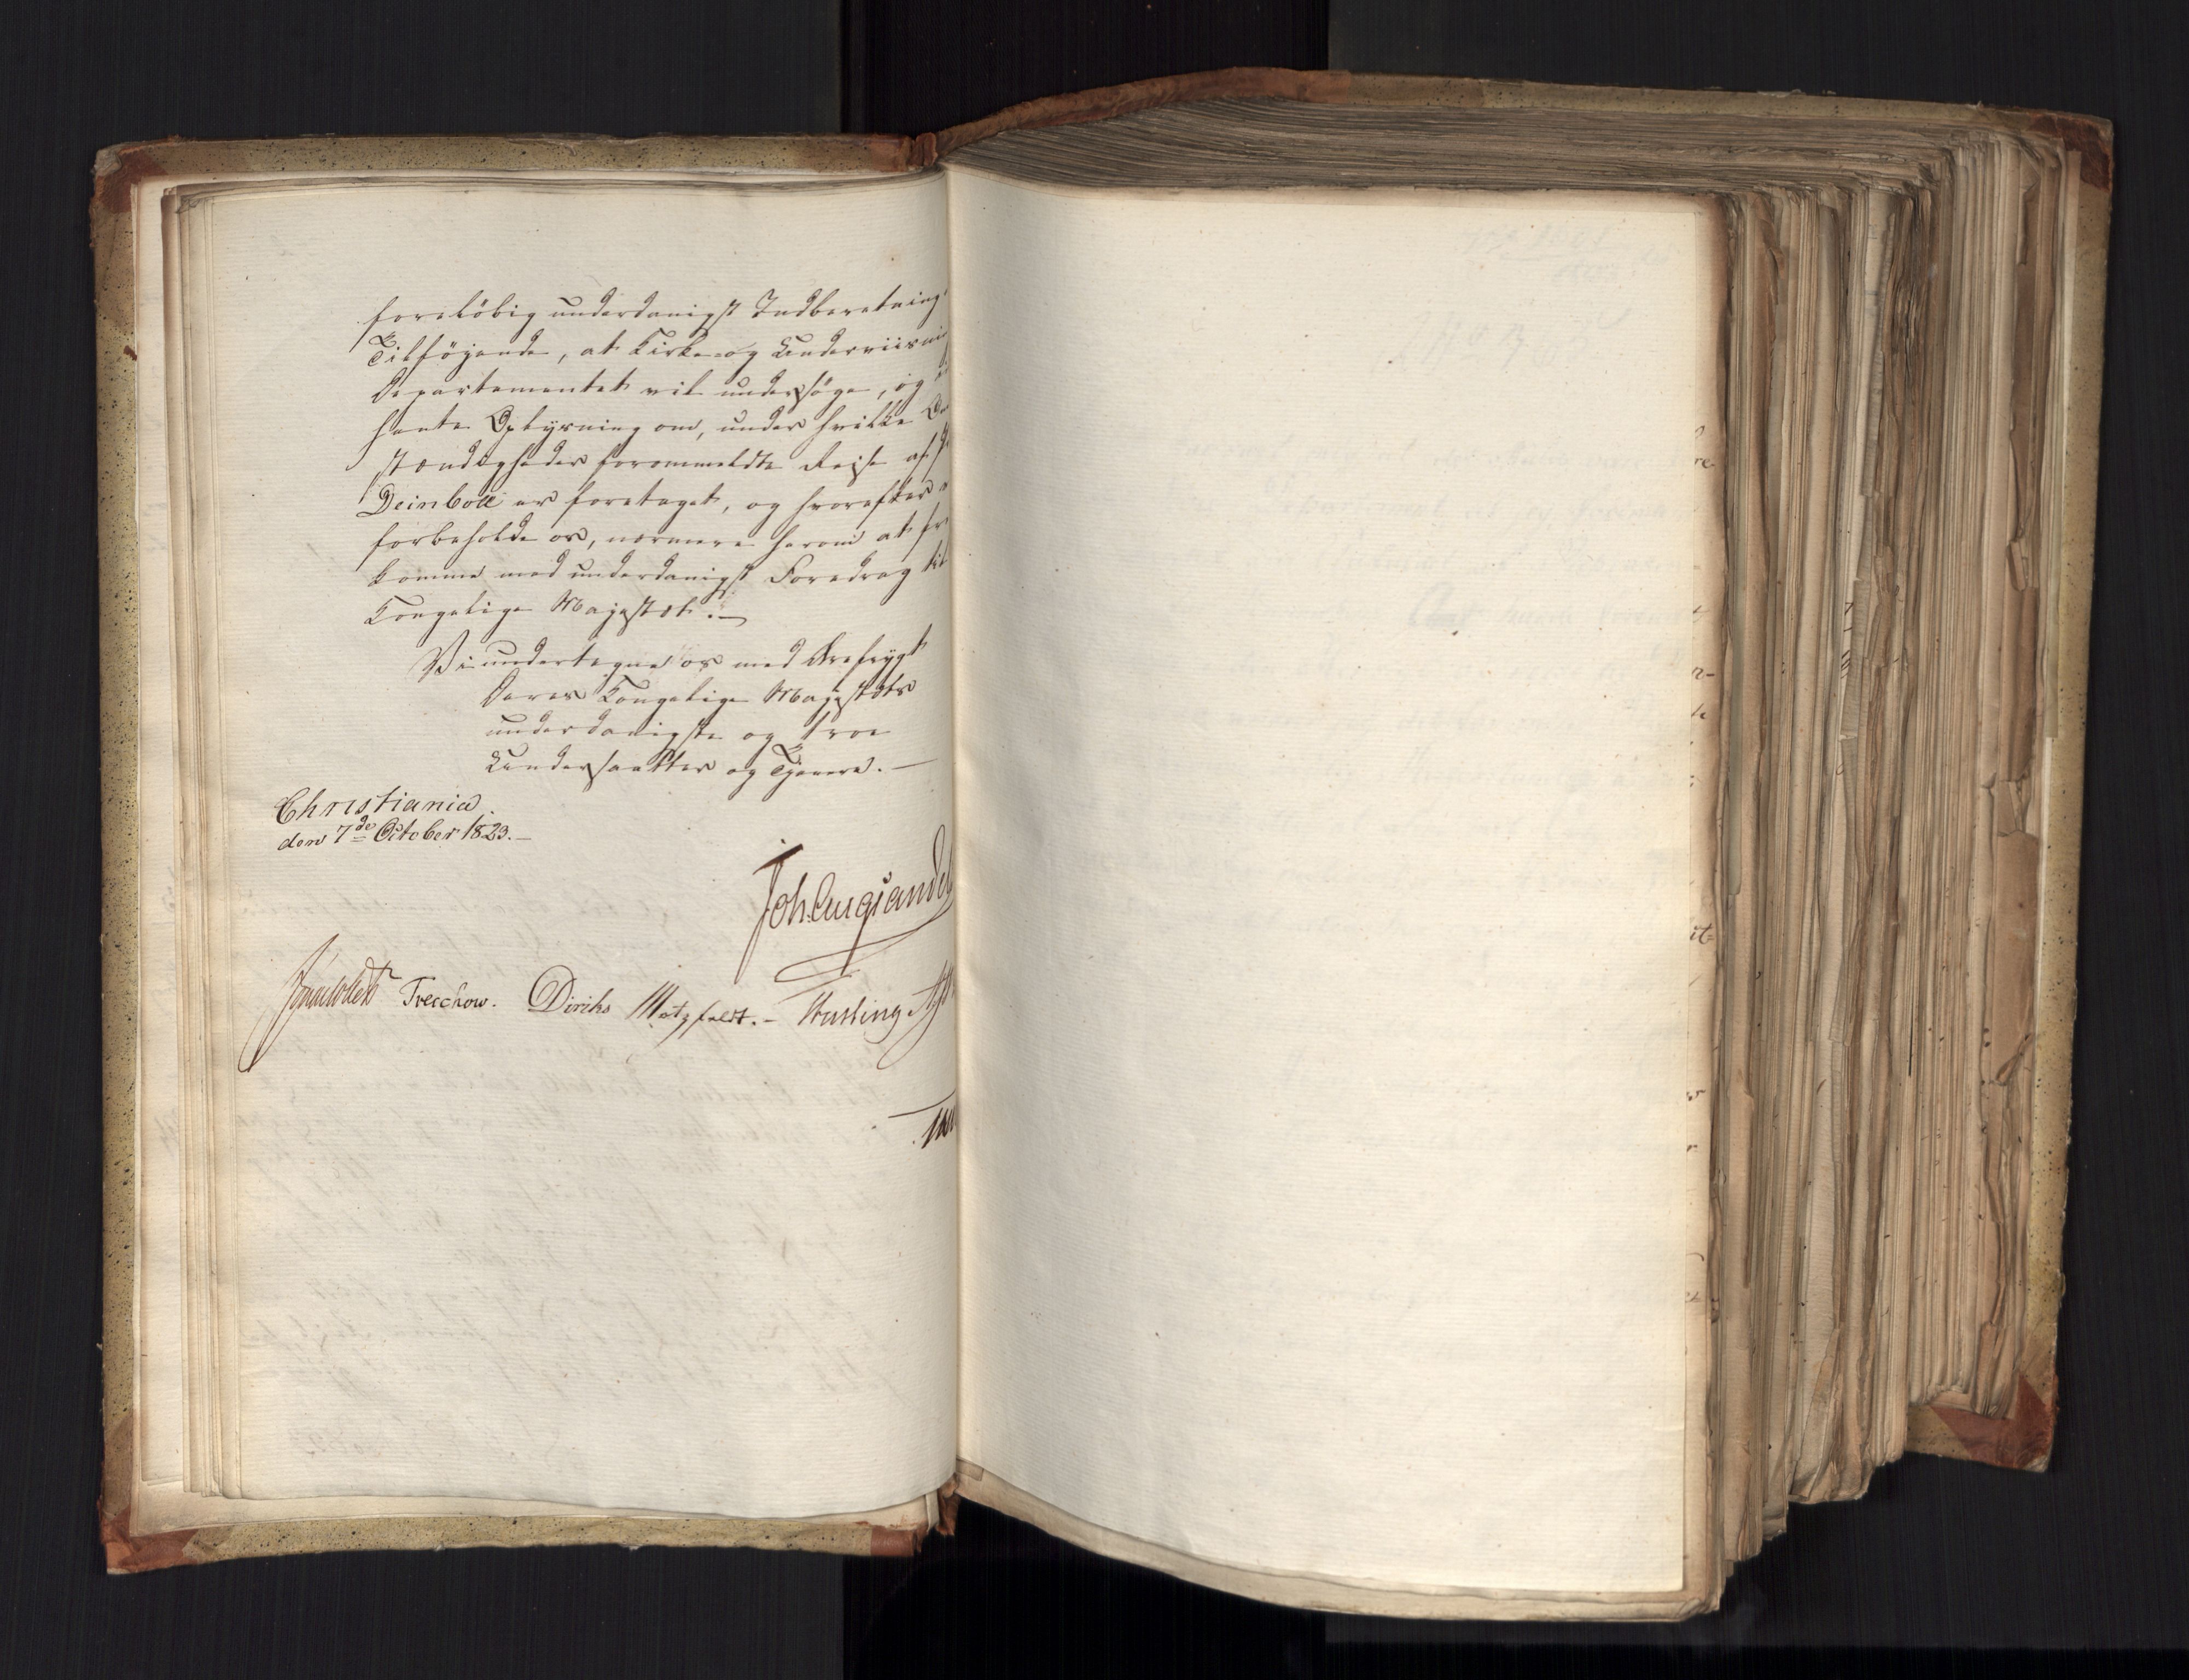 foreløbig underdanigst Indberetning
Tilføjende, at Kirke- og Underviisni
Departementet vil undersøge, og
hente Oplysning om, under hvilke
stændigheder forommeldte Rejse af
Deinboll er foretaget, og hvorefter
forbeholde os, nærmere herom at fr
komme med underdanigst Foredrag til
Kongelige Majestæt.
Vi undertegne os med Ærefrygt
Deres Kongelige Majestæts
underdanigste og troe
Undersaatter og Tjenere.
Christiania
den 7de October 1823.
Joh. Aug. Sandel
Treschow. Diriks Motzfeldt.